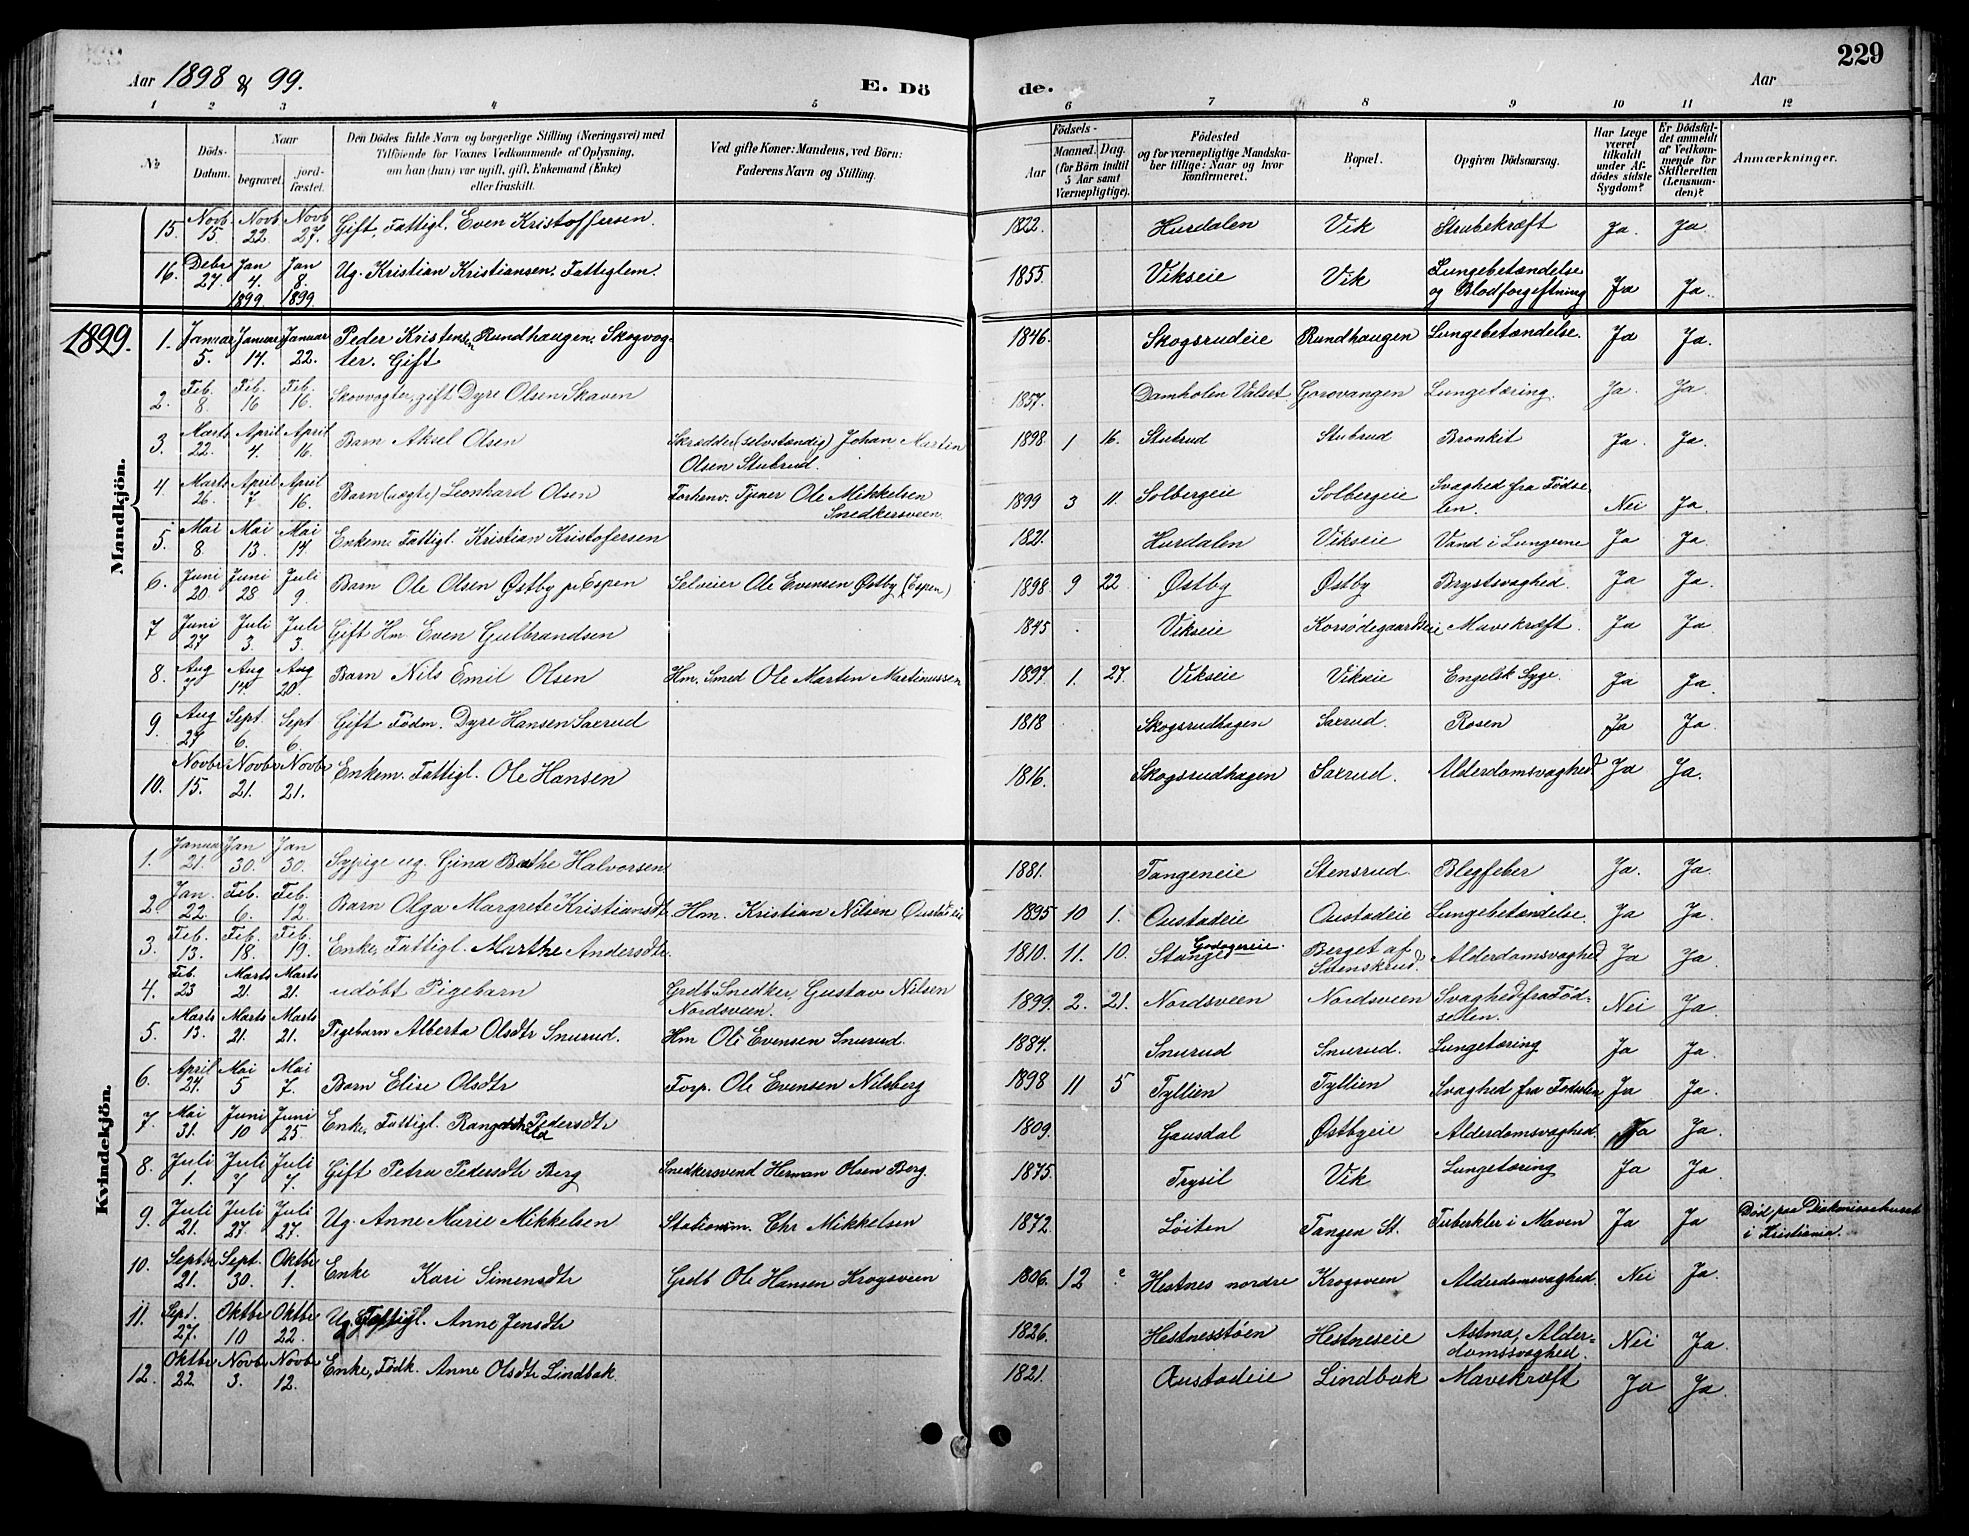 229
Aar 1898 & 99.
E. Dö de.
Aar
1 2 3 4 5 6 7 8 9 10 11 12
№
Döds-Datum.
Naar
begravet.
jordfæstet.
Den Dödes fulde Navn og borgerlige Stilling (Næringsvei) med
Tilföiende for Voxnes Vedkommende af Oplysning,
om han (hun) var ugift, gift, Enkemand (Enke)
eller fraskilt.
Ved gifte Koner: Mandens, ved Börn:
Faderens Navn og Stilling.
Födsels-
Aar
Maaned. Dag.
(for Börn indtil
5 Aar samt
Værnepligtige).
Födested
og for værnepligtige Mandska-
ber tillige: Naar og hvor
konfirmeret.
Bopæl.
Opgiven Dödsaarsag.
Har Læge
været
tilkaldt
under Af-
dödes sidste
Sygdom?
Er Dödsfal-
det anmeldt
af Vedkom-
mende for
Skifteretten
(Lensman-
den)?
Anmærkninger.
Mandkjön.
15. Novb 15. Novb 22 Novb 27. Gift, Fattigl. Even Kristoffersen. 1822. Hurdalen Vik Strubekræft Ja. Ja
16. Debr 27. Jan 4. 1899 Jan 8. 1899 Ug. Kristian Kristiansen. Fattiglem. 1855. Vikseie Vik Lungebetændelse
og Blodforgiftning Ja Ja.
1899.
1. Januar 5. Januar 14. Januar 22. Peder Kristensen Rundhaugen. Skogvog-
ter. Gift 1846. Skogsrudeie Rundhaugen Lungebetændelse. Ja Ja.
2. Feb. 8. Feb. 16 Feb. 16. Skovvogter, gift Dyre Olsen Skaven 1857. Damholen Valset Gorovangen Lungetæring. Ja. Ja.
3. Marts 22. April 4. April 16. Barn Aksel Olsen Skrædder (selvstændig) Johan Martin
Olsen Stubrud. 1898 1 16. Stubrud Stubrud Bronkit Ja. Ja.
4. Marts 26. April 7 April 16. Barn (uægte) Leonhard Olsen Forhenv. Tjener Ole Mikkelsen
Snedkersveen. 1899 3 11. Solbergeie Solbergeie Svaghed fra Fødse
len. Nei Ja.
5. Mai 8. Mai 13. Mai 14 Enkem. Fattigl. Kristian Kristofersen 1821. Hurdalen Vikseie Vand i Lungerne Ja Ja.
6. Juni 20. Juni 28 Juli 9. Barn Ole Olsen Østby pr Espen Selveier Ole Evensen Østby (Espen) 1898 9 22 Østby Østby Brystsvaghed. Ja Ja.
7 Juni 27 Juli 3. Juli 3. Gift Hm Even Gulbrandsen 1845 Vikseie Korsødegaardseie Mavekræft. Ja Ja
8. Aug 7 Aug 14 Aug 20. Barn Nils Emil Olsen Hm. Smed Ole Marten Martinussen 1897 1. 27. Vikseie Vikseie Engelsk Syge. Ja Ja.
9. Aug 27 Sept. 6. Sept 6. Gift Födm. Dyre Hansen Saxrud 1818 Skogsrudhagen Saxrud. Rosen Ja Ja.
10. Novbr 15. Novbr 21. Novbr 21. Enkem. Fattigl. Ole Hansen 1816. Skogsrudhagen Saxrud. Alderdomsvaghed Ja Ja.
Kvindekjön.
1. Januar 21. Jan 30. Jan 30. Sypige ug. Gina Bathe Halvorsen 1881. Tangeneie Stensrud. Blegfeber Ja. Ja.
2. Jan. 22. Feb. 6. Feb. 12. Barn Olga Margrete Kristiansdt. Hm. Kristian Nilsen Austadeie 1895 10 1. Austadeie Austadeie Lungebetændelse. Ja Ja.
3. Feb. 13. Feb. 18. Feb. 19. Enke, Fattigl. Marthe Andersdtr. 1810. 11. 10. Stange Berget af
Svenskrud. Alderdomsvaghed Ja Ja.
4. Feb. 23 Marts 21. Marts 21. udöbt Pigebarn Grdb Snedker, Gustav Nilsen
Nordsveen. 1899 2. 21. Nordsveen Nordsveen Svaghed fra Föd-
selen. Nei Ja.
5. Marts 13. Marts 21. Marts 21. Pigebarn Alberta Olsdtr Snurud. Hm Ole Evensen Snurud. 1884. Snurud Snurud. Lungetæring Ja Ja.
6. April 24. Mai 5 Mai 7. Barn Elise Olsdtr Forp. Ole Evensen Nilsberg 1898 11 5 Tyllien Tyllien Svaghed fra Fødselen Ja Ja.
7. Mai 31. Juni 10 Juni 25 Enke, Fattigl. Rangdid Pedersdtr 1809. Gausdal Østbyeie Alderdomsvaghed. Ja Ja.
8. Juli 1. Juli 7 Juli 7. Gift Petra Pedersdtr Berg Snedkersvend Herman Olsen Berg. 1875. Trysil Vik Lungetæring Ja Ja.
9. Juli 21. Juli 27. Juli 27. Ug. Anne Marie Mikkelsen Stationsm. Chr Mikkelsen 1872. Löiten Tangen St. Tuberkler i Maven Ja Ja Död paa Diakonissehuset
i Kristiania.
10. Septbr 21. Sept. 30. Oktbr 1. Enke Kari Simensdtr Grdb Ole Hansen Krogsveen 1806. 12 ? Hestnes nordre Krogsveen Alderdomsvaghed. Nei Ja.
11. Sept. 27. Oktbr 10 Oktbr 22. Ug. Fattigl. Anne Jensdtr 1826. Hestnesstöen Hestneseie Astma, Alder-
domssvaghed. Nei Ja.
12. Oktbr 22 Novbr 3. Novbr 12. Enke, Födk. Anne Olsdtr Lindbak. 1821. Austadeie Lindbak Mavekræft Ja Ja.